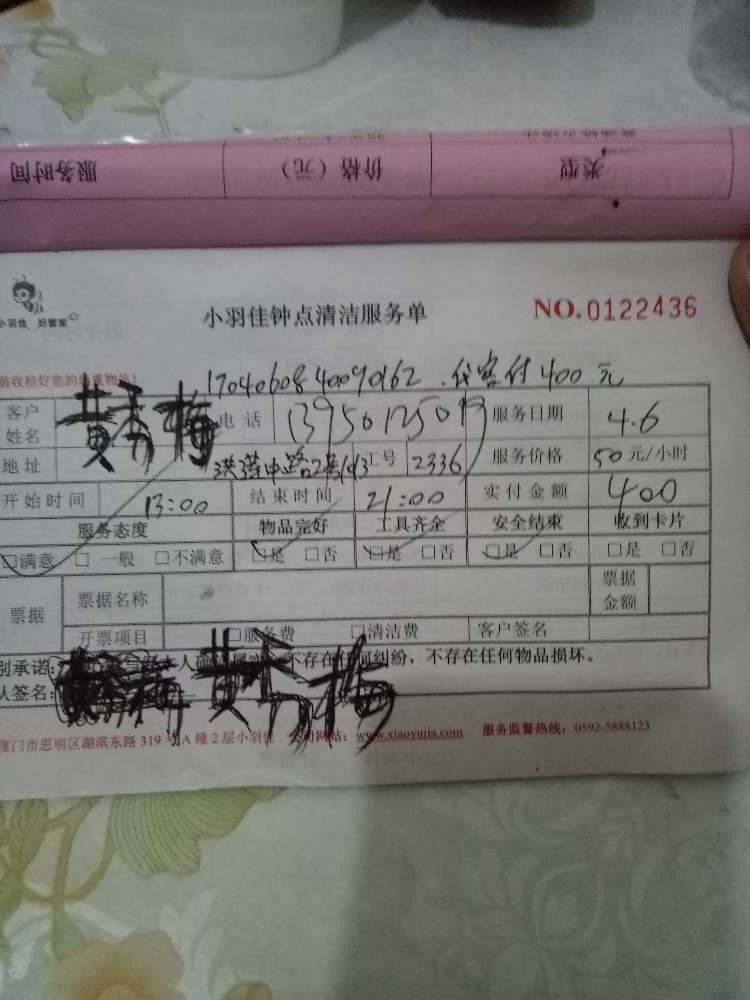 服务时间 价格（元） 类型
小羽佳 好管家
小羽佳钟点清洁服务单 NO.0122436
前收捡好您的贵重物品！ 1704060840090162.代客付400元
客户姓名 黄秀梅 电话 13950125019 服务日期 4.6
地址 洪莲中路2 工号 2336 服务价格 50元/小时
开始时间 13:00 结束时间 21:00 实付金额 400
服务态度 物品完好 工具齐全 安全结束 收到卡片
□满意 □一般 □不满意 □是 □否 □是 □否 □是 □否 □是 □否
票据 票据名称 票据金额
开票项目 □服务费 □清洁费 客户签名
别承诺： 人 不存在任何纠纷，不存在任何物品损坏。
认签名： 黄秀梅
厦门市思明区湖滨东路 319 号A幢2层小羽佳 网站：www.xiaoyujia.com 服务监督热线：0592-5888123